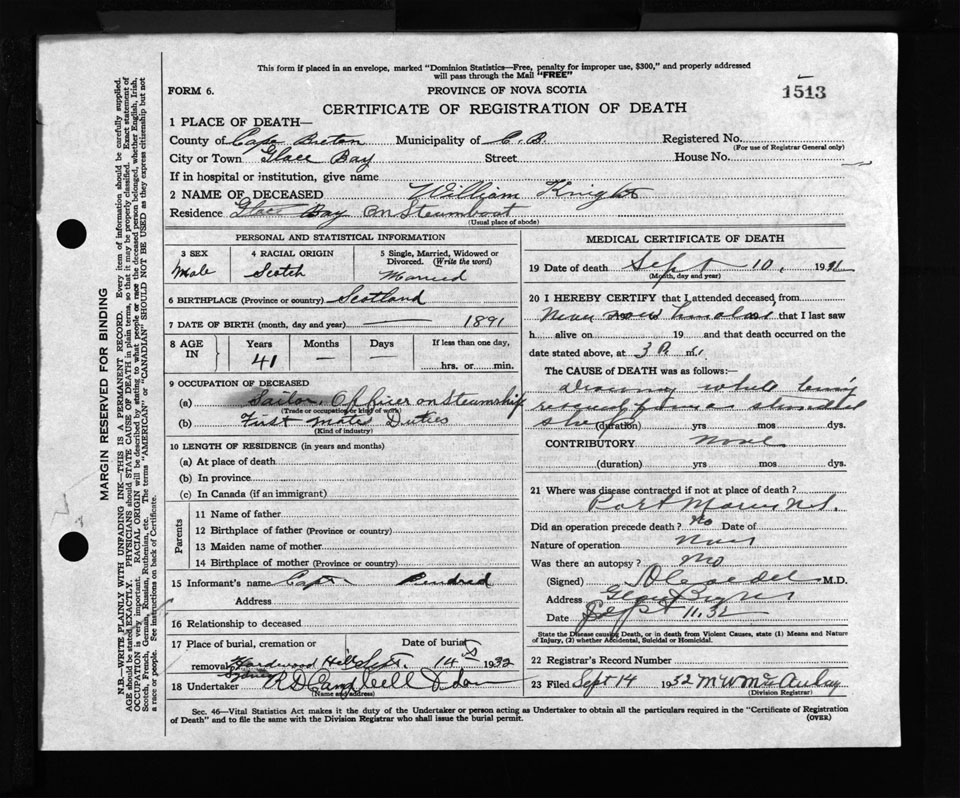 This form if placed in an envelope, marked "Dominion Statistics—Free, penalty for improper use, $300," and properly addressed
will pass through the Mail "FREE"
FORM 6.
PROVINCE OF NOVA SCOTIA
1513
CERTIFICATE OF REGISTRATION OF DEATH
1 PLACE OF DEATH—
County of Cape Breton Municipality of C. B. Registered No.
(For use of Registrar General only)
City or Town Glace Bay Street House No.
If in hospital or institution, give name
2 NAME OF DECEASED William Knight
Residence Glace Bay on Steamboat
(Usual place of abode)
PERSONAL AND STATISTICAL INFORMATION
3 SEX
Male
4 RACIAL ORIGIN
Scotch
5 Single, Married, Widowed or
Divorced. (Write the word)
Married
6 BIRTHPLACE (Province or country) Scotland
7 DATE OF BIRTH (month, day and year) — 1891
8 AGE
IN
Years
41
Months
—
Days
—
If less than one day,
hrs. or min.
9 OCCUPATION OF DECEASED
(a) Sailor Officer on Steamship
(Trade or occupation or kind of work)
(b) First Mates Duties
(Kind of industry)
10 LENGTH OF RESIDENCE (in years and months)
(a) At place of death
(b) In province
(c) In Canada (if an immigrant)
Parents
11 Name of father
12 Birthplace of father (Province or country)
13 Maiden name of mother
14 Birthplace of mother (Province or country)
15 Informant's name Capt
Address
16 Relationship to deceased
17 Place of burial, cremation or
removal Hardwood Hill
Sydney
Date of burial
Sept. 14 1932
18 Undertaker R D Campbell & Son
(Name and address)
MEDICAL CERTIFICATE OF DEATH
19 Date of death Sept 10, 19
(Month, day and year)
20 I HEREBY CERTIFY that I attended deceased from
Never that I last saw
h alive on 19 and that death occurred on the
date stated above, at 3 P. m.
The CAUSE of DEATH was as follows:—
while being
(duration) yrs mos dys.
CONTRIBUTORY None
(duration) yrs mos dys.
21 Where was disease contracted if not at place of death?
Port
Did an operation precede death? No Date of
Nature of operation
Was there an autopsy? No
(Signed) M.D.
Address Glace Bay
Date Sept 11, 32
State the Disease causing Death, or in death from Violent Causes, state (1) Means and Nature
of Injury, (2) whether Accidental, Suicidal or Homicidal.
22 Registrar's Record Number
23 Filed Sept 14 1932 M W McAulay
(Division Registrar)
Sec. 46—Vital Statistics Act makes it the duty of the Undertaker or person acting as Undertaker to obtain all the particulars required in the "Certificate of Registration
of Death" and to file the same with the Division Registrar who shall issue the burial permit.
(OVER)
MARGIN RESERVED FOR BINDING
N.B.—WRITE PLAINLY WITH UNFADING INK—THIS IS A PERMANENT RECORD. Every item of information should be carefully supplied.
AGE should be stated EXACTLY. PHYSICIANS should STATE CAUSE OF DEATH in plain terms, so that it may be properly classified. Exact statement of
OCCUPATION is very important. RACIAL ORIGIN will be described by stating to what people or race the deceased person belonged, whether English, Irish,
Scotch, French, German, Russian, Ruthenian, etc. The terms "AMERICAN" or "CANADIAN" SHOULD NOT BE USED as they express citizenship but not
a race or people. See instructions on back of Certificate.